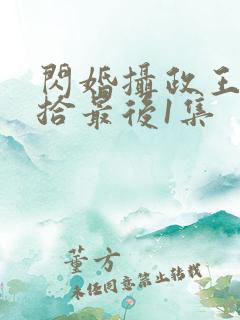 閃婚攝政王
拾最後1集
董方
未经同意禁止转载